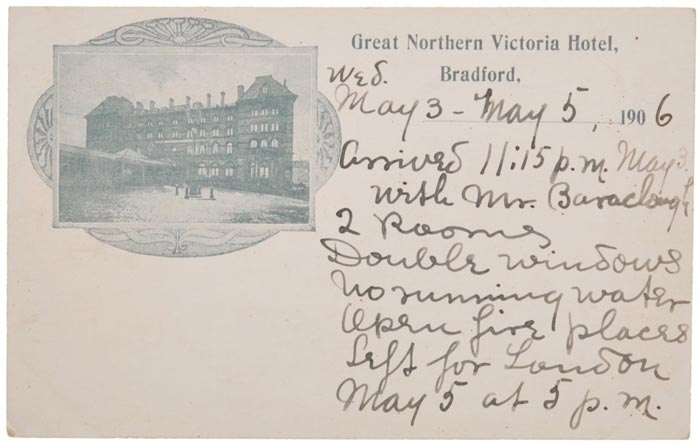 Great Northern Victoria Hotel,
Bradford,
Wed.
May 3 - May 5, 1906
Arrived 11:15 p.m. May 3.
with Mr. Baraclough
2 Rooms
Double windows
No running water
Open fire places
Left for London
May 5 at 5 p.m.